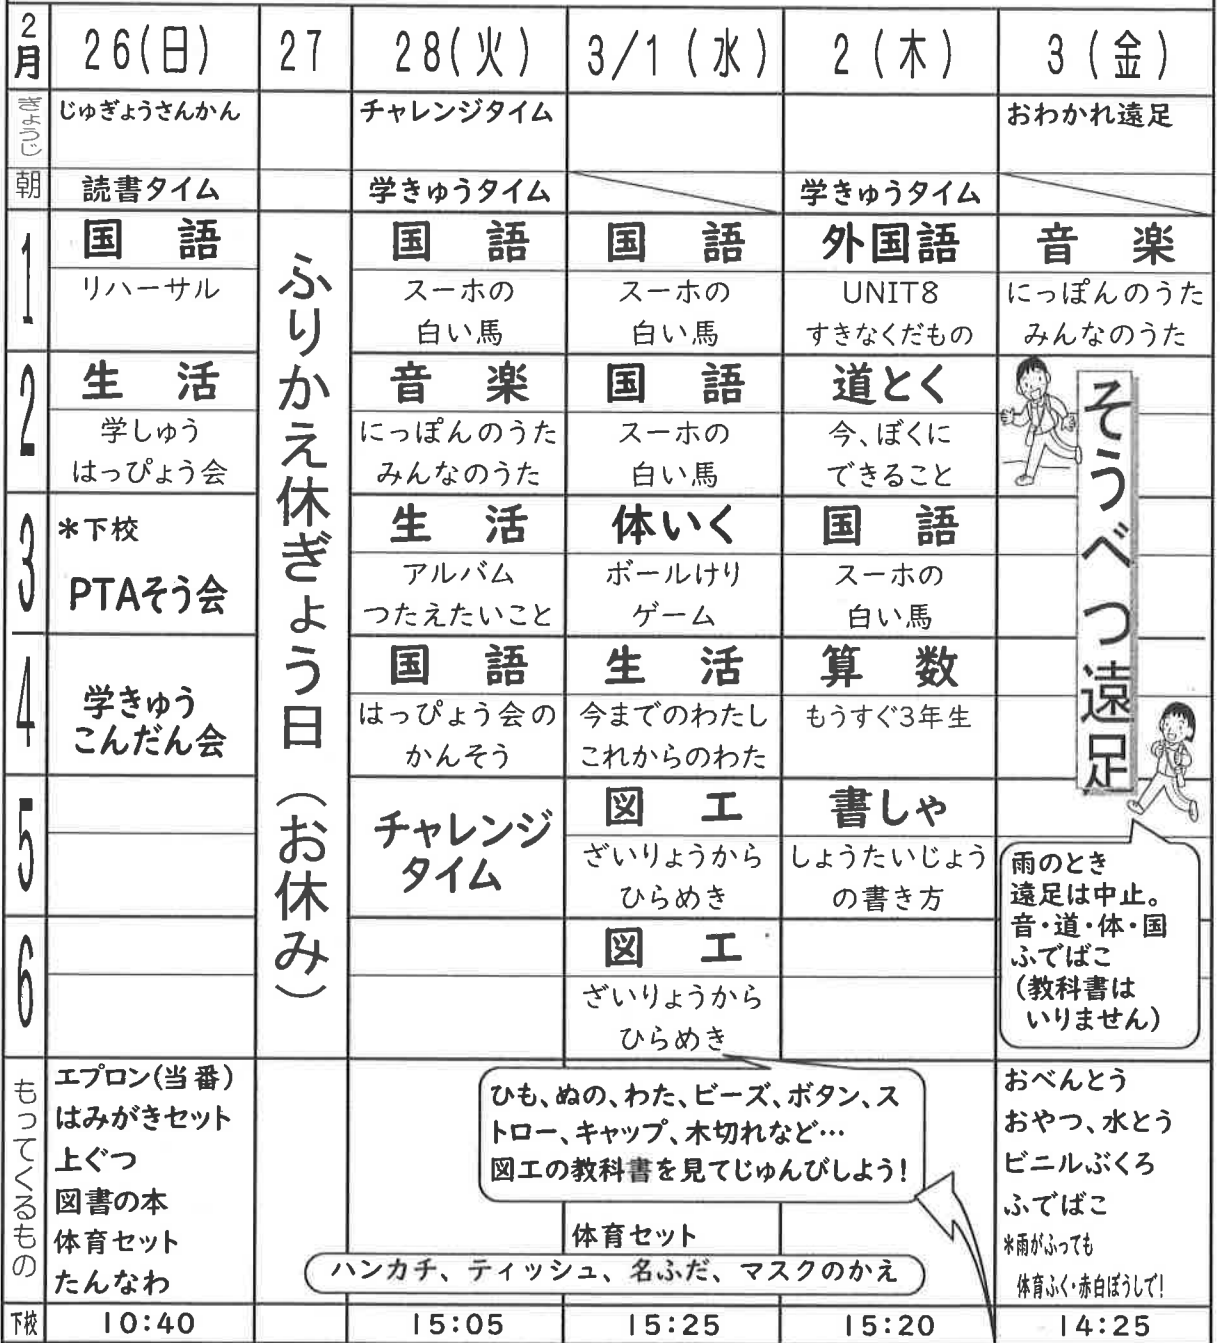 2月
26(日)
27
28(火)
3/1(水)
2(木)
3(金)
ぎょうじ
じゅぎょうさんかん
チャレンジタイム
おわかれ遠足
朝
読書タイム
学きゅうタイム
学きゅうタイム
1
国語
リハーサル
ふりかえ休ぎょう日(お休み)
国語
スーホの
白い馬
国語
スーホの
白い馬
外国語
UNIT8
すきなくだもの
音楽
にっぽんのうた
みんなのうた
2
生活
学しゅう
はっぴょう会
音楽
にっぽんのうた
みんなのうた
国語
スーホの
白い馬
道とく
今、ぼくに
できること
そうべつ遠足
3
*下校
PTAそう会
生活
アルバム
つたえたいこと
体いく
ボールけり
ゲーム
国語
スーホの
白い馬
4
学きゅう
こんだん会
国語
はっぴょう会の
かんそう
生活
今までのわたし
これからのわた
算数
もうすぐ3年生
5
チャレンジ
タイム
図工
ざいりょうから
ひらめき
書しゃ
しょうたいじょう
の書き方
雨のとき
遠足は中止。
音・道・体・国
ふでばこ
(教科書は
いりません)
6
図工
ざいりょうから
ひらめき
もってくるもの
エプロン(当番)
はみがきセット
上ぐつ
図書の本
体育セット
たんなわ
ひも、ぬの、わた、ビーズ、ボタン、ス
トロー、キャップ、木切れなど…
図工の教科書を見てじゅんびしよう!
体育セット
ハンカチ、ティッシュ、名ふだ、マスクのかえ
おべんとう
おやつ、水とう
ビニルぶくろ
ふでばこ
*雨がふっても
体育ふく・赤白ぼうしで!
下校
10:40
15:05
15:25
15:20
14:25